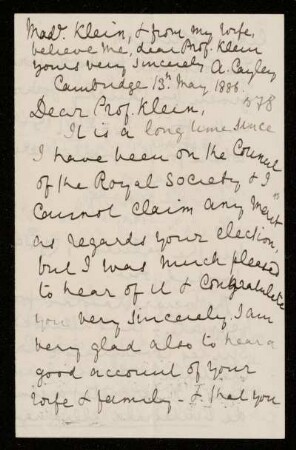 Madᵉ. Klein, & from my wife,
believe me, dear Prof. Klein
yours very sincerely A. Cayley
Cambridge 13th. May 1886.
578
Dear Prof. Klein,
It is a long time since
I have been on the Council
of the Royal Society & I
cannot claim any "merit"
as regards your election,
but I was much pleased
to hear of it & congratulate
you very sincerely. I am
very glad also to hear a
good account of your
wife & family - & that you